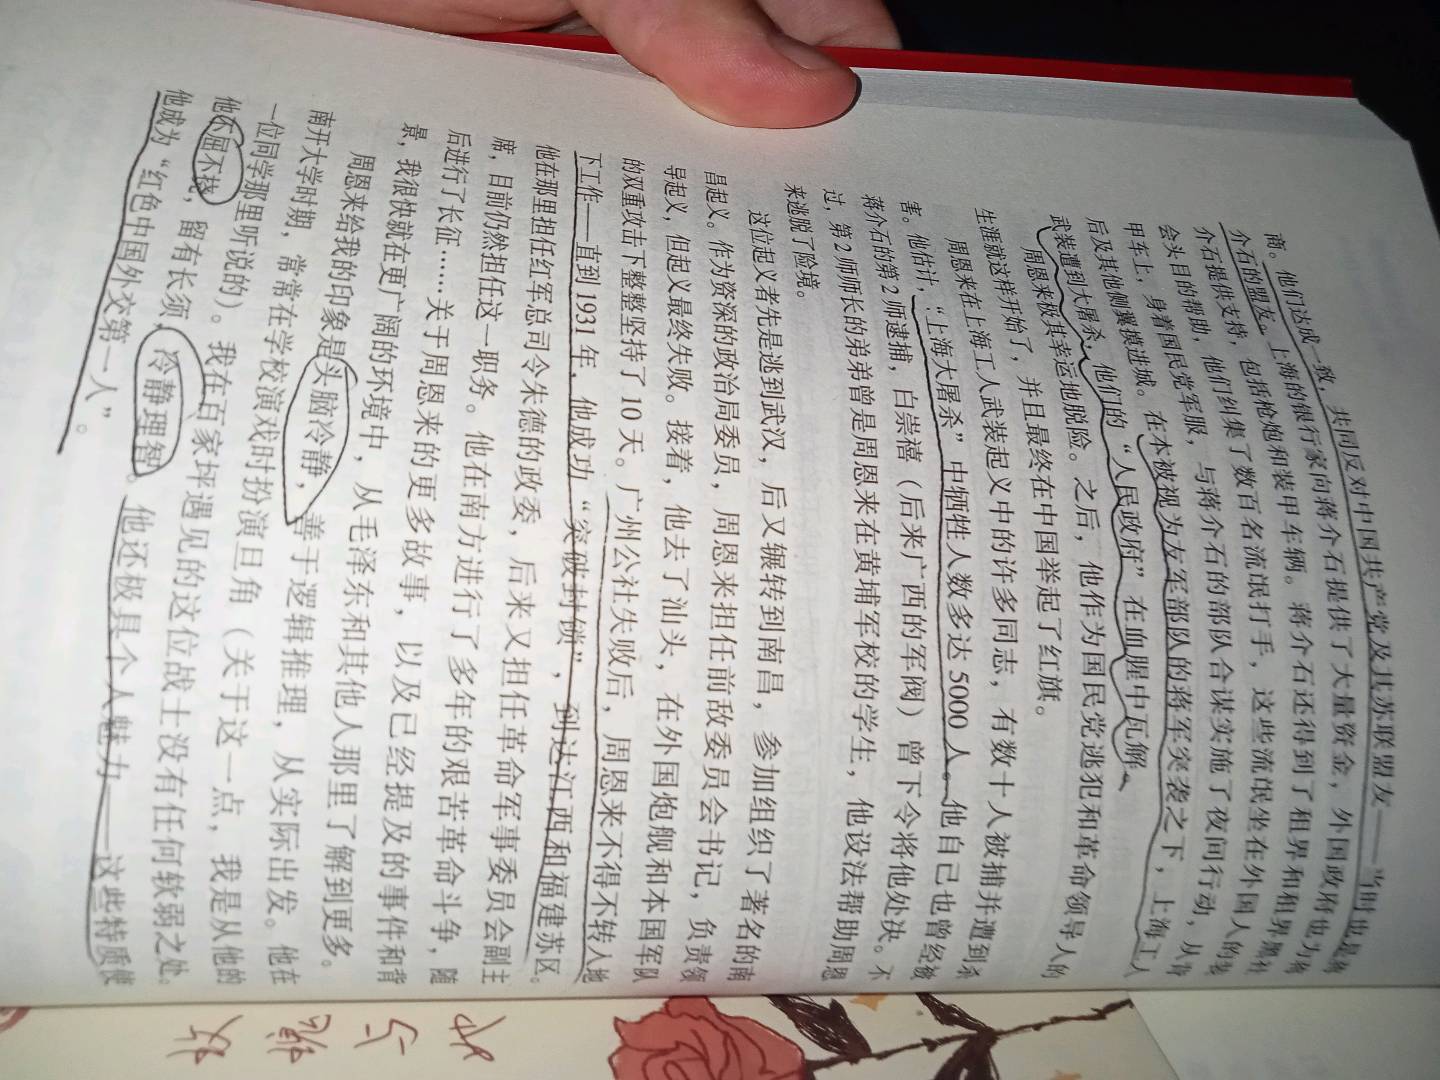 商。他们达成一致，共同反对中国共产党及其苏联盟友——当时也是蒋
介石的盟友。上海的银行家向蒋介石提供了大量资金，外国政府也为蒋
介石提供支持，包括枪炮和装甲车辆。蒋介石还得到了租界和租界黑社
会头目的帮助，他们纠集了数百名流氓打手，这些流氓坐在外国人的装
甲车上，身着国民党军服，与蒋介石的部队合谋实施了夜间行动，从背
后及其他侧翼摸进城。在本被视为友军部队的蒋军突袭之下，上海工人
武装遭到大屠杀，他们的“人民政府”在血腥中瓦解。
周恩来极其幸运地脱险。之后，他作为国民党逃犯和革命领导人的
生涯就这样开始了，并且最终在中国举起了红旗。
周恩来在上海工人武装起义中的许多同志，有数十人被捕并遭到杀
害。他估计，“上海大屠杀”中牺牲人数多达5000人。他自己也曾经被
蒋介石的第2师逮捕，白崇禧（后来广西的军阀）曾下令将他处决。不
过，第2师师长的弟弟曾是周恩来在黄埔军校的学生，他设法帮助周恩
来逃脱了险境。
这位起义者先是逃到武汉，后又辗转到南昌，参加组织了著名的南
昌起义。作为资深的政治局委员，周恩来担任前敌委员会书记，负责领
导起义，但起义最终失败。接着，他去了汕头，在外国炮舰和本国军队
的双重攻击下整整坚持了10天。广州公社失败后，周恩来不得不转入地
下工作——直到1931年，他成功“突破封锁”，到达江西和福建苏区。
他在那里担任红军总司令朱德的政委，后来又担任革命军事委员会副主
席，目前仍然担任这一职务。他在南方进行了多年的艰苦革命斗争，随
后进行了长征……关于周恩来的更多故事，以及已经提及的事件和背
景，我很快就在更广阔的环境中，从毛泽东和其他人那里了解到更多。
周恩来给我的印象是头脑冷静，善于逻辑推理，从实际出发。他在
南开大学时期，常常在学校演戏时扮演旦角（关于这一点，我是从他的
一位同学那里听说的）。我在百家坪遇见的这位战士没有任何软弱之处。
他不屈不挠，留有长须，冷静理智。他还极具个人魅力——这些特质使
他成为“红色中国外交第一人”。